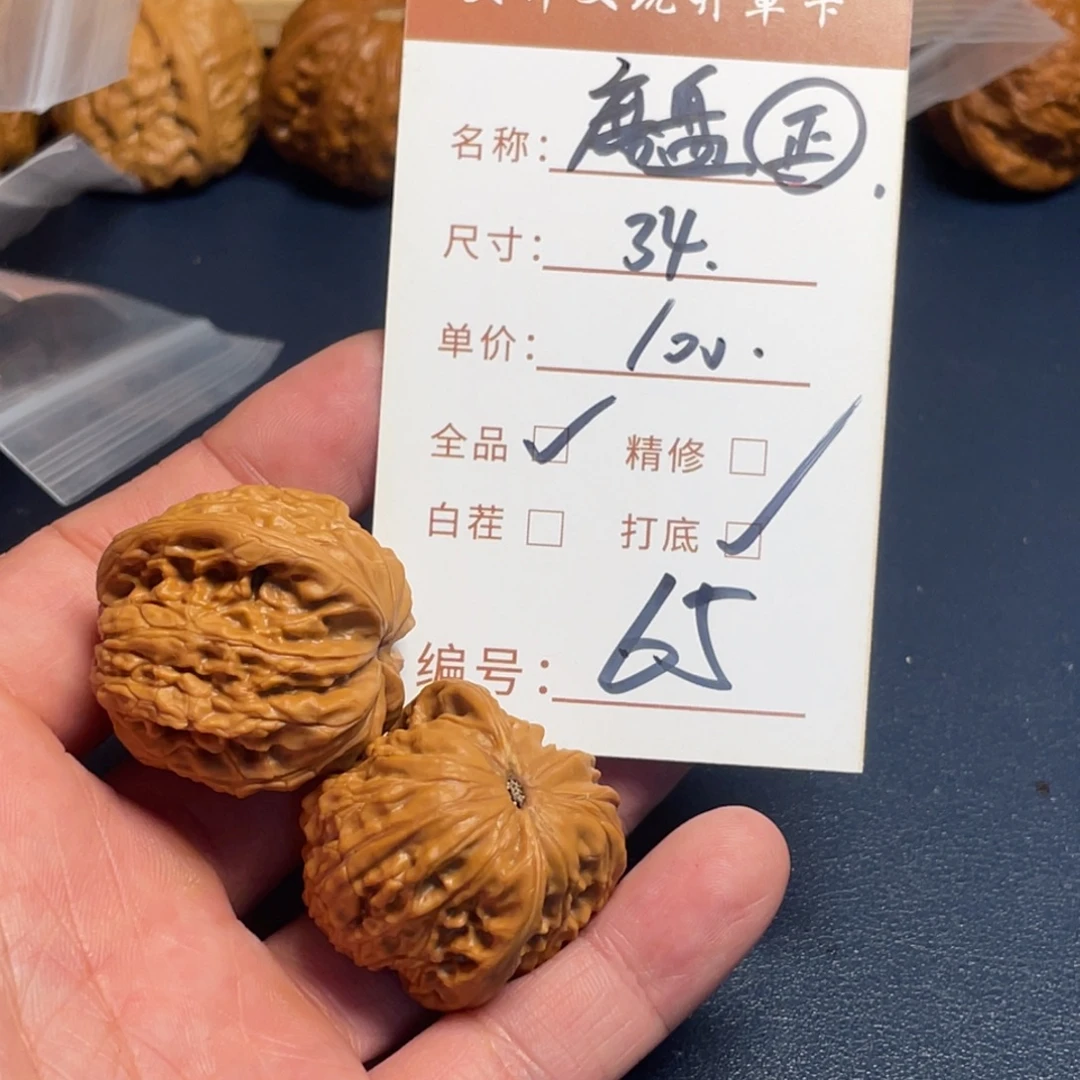 名称: 磨盘 正
尺寸: 34.
单价: 100.
全品 ✓ 精修 □
白茬 □ 打底 ✓
编号: 65